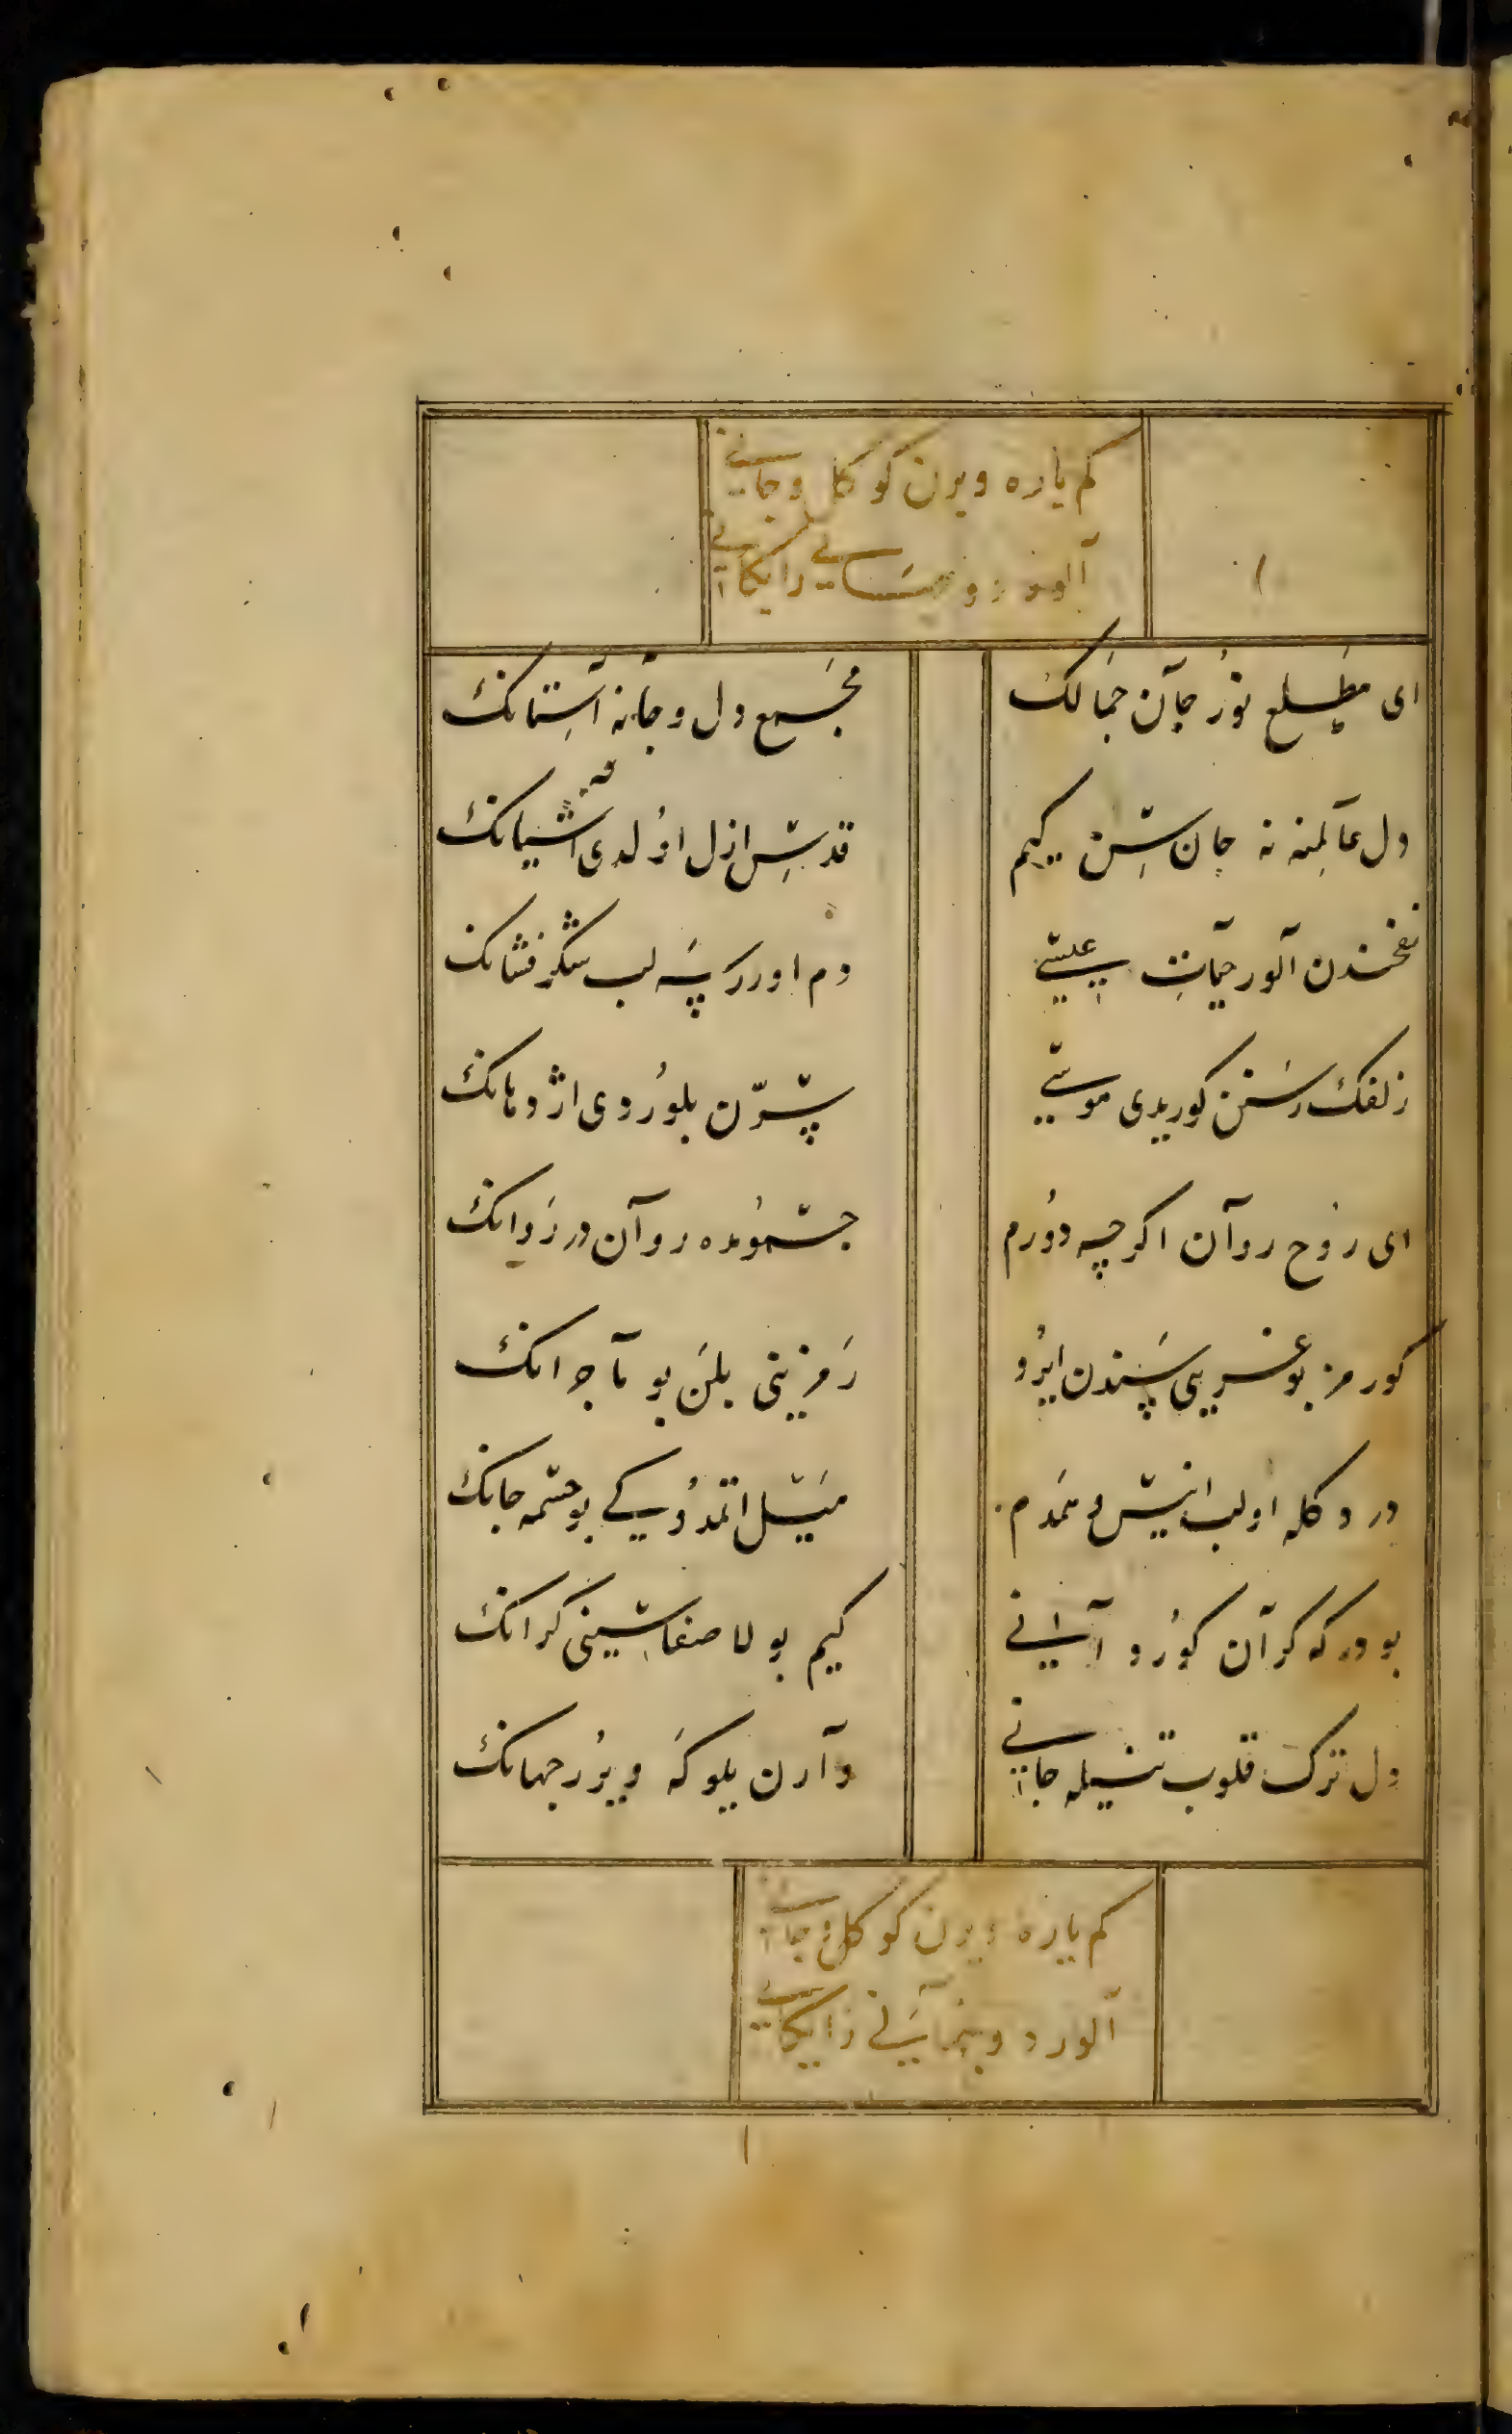 کم یاره ویرن کوکل و جانی
آلور رایکانی
ای مطلع نور جان جمالک مجمع دل و جانه آستانک
دل عالمنه نه جان سن کیم قدس ازل اولدی آشیانک
نفخندن آلور حیات عیسی دم اورر لب شکر فشانک
زلفک رسنن کوریدی موسی سرّن بلوردی اژدهانک
ای روح روان اگرچه دورم جسموده روان در روانک
کورمز بو غریبی سندن ایرو رمزینی بلن بو ماجرانک
درد کله اولب انیس و همدم میل اتمدو کی بو جسمه جانک
بودر که کران کورو آسانی کیم بولا صفاسینی کرانک
دل ترک قلوب تنیله جانی وارن یلوکه ویرر جهانک
کم یاره ویرن کوکل و جانی
آلور رایکانی